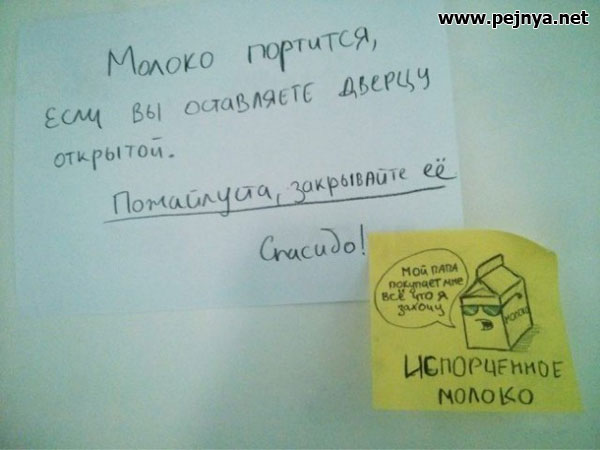 www.pejnya.net
Молоко портится,
если вы оставляете дверцу
открытой.
Пожайлуста, закрывайте её
Спасибо!
Мой папа
покупает мне
всё что я
захочу
молоко
Испорченное
молоко